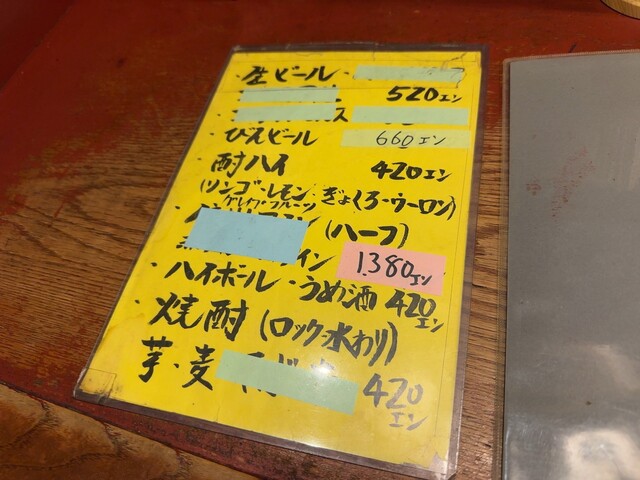 ・生ビール・
520エン
ス
びんビール 660エン
・酎ハイ 420エン
(リンゴ・レモン・ぎょくろ・ウーロン)
グレープ・フルーツ
(ハーフ)
イン 1.380エン
・ハイボール・うめ酒 420エン
・焼酎(ロック・水わり)
芋・麦 420エン